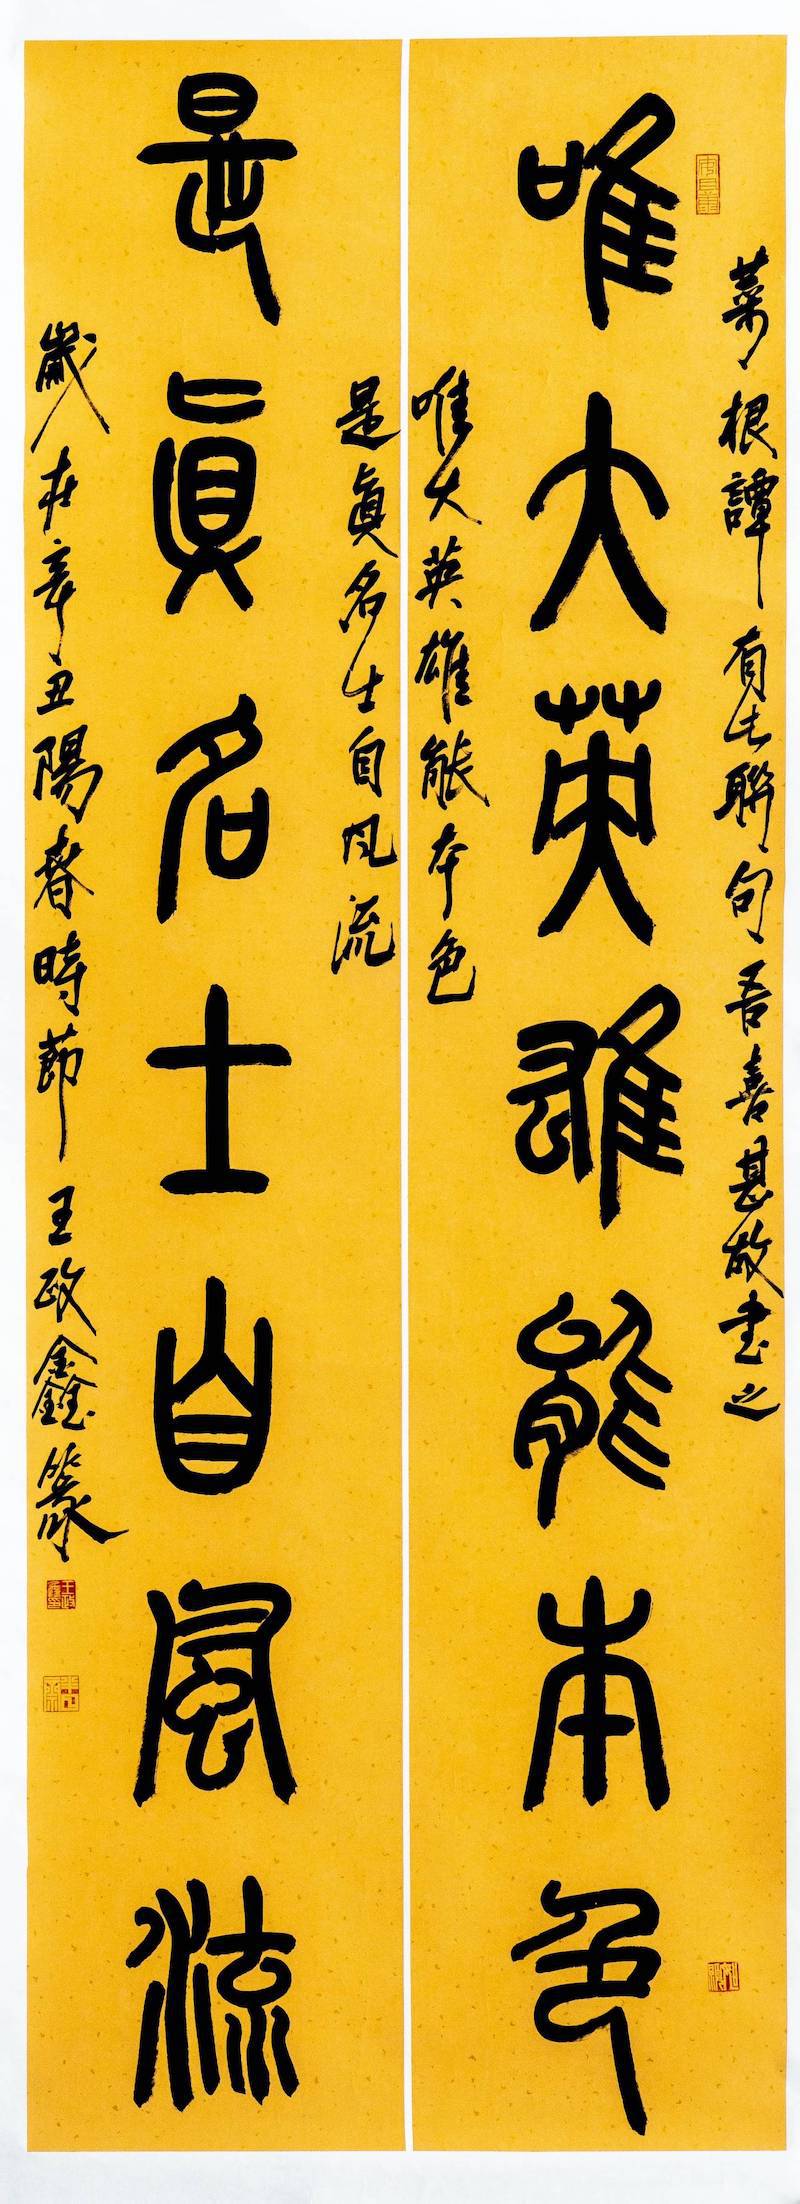 菜根譚有此聯句吾喜甚故書之
唯大英雄能本色
唯大英雄能本色
是真名士自風流
是真名士自風流
歲在辛丑陽春時節王政鑫篆